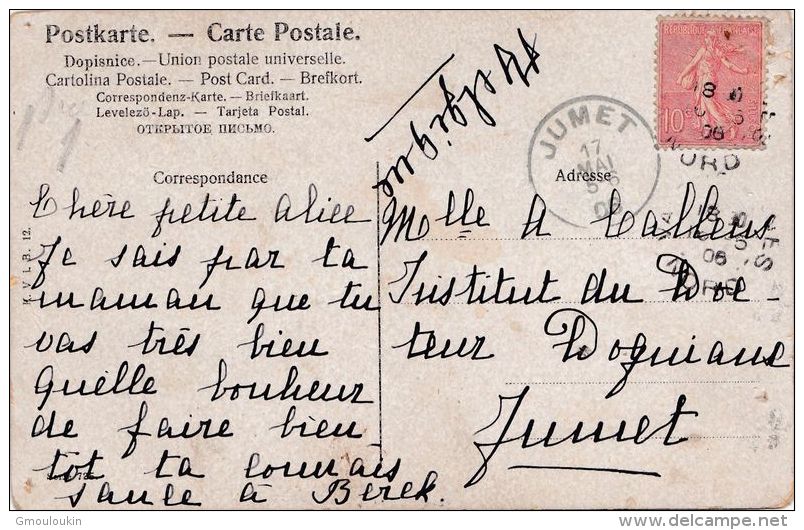 Postkarte. — Carte Postale.
Dopisnice. — Union postale universelle.
Cartolina Postale. — Post Card. — Brefkort.
Correspondenz-Karte. — Briefkaart.
Levelező-Lap. — Tarjeta Postal.
ОТКРЫТОЕ ПИСЬМО.
Correspondance
Chère petite Alice
Je sais par ta
maman que tu
vas très bien
quelle bonheur
de faire bien
tôt ta connais
sance à Berck.
K. V. i. B. 12.
RÉPUBLIQUE FRANÇAISE
10
JUMET
17
MAI
NORD
18
06
Adresse
Mlle A Callens
Institut du Doc-
teur
Jumet
Gmouloukin
delcampe.net